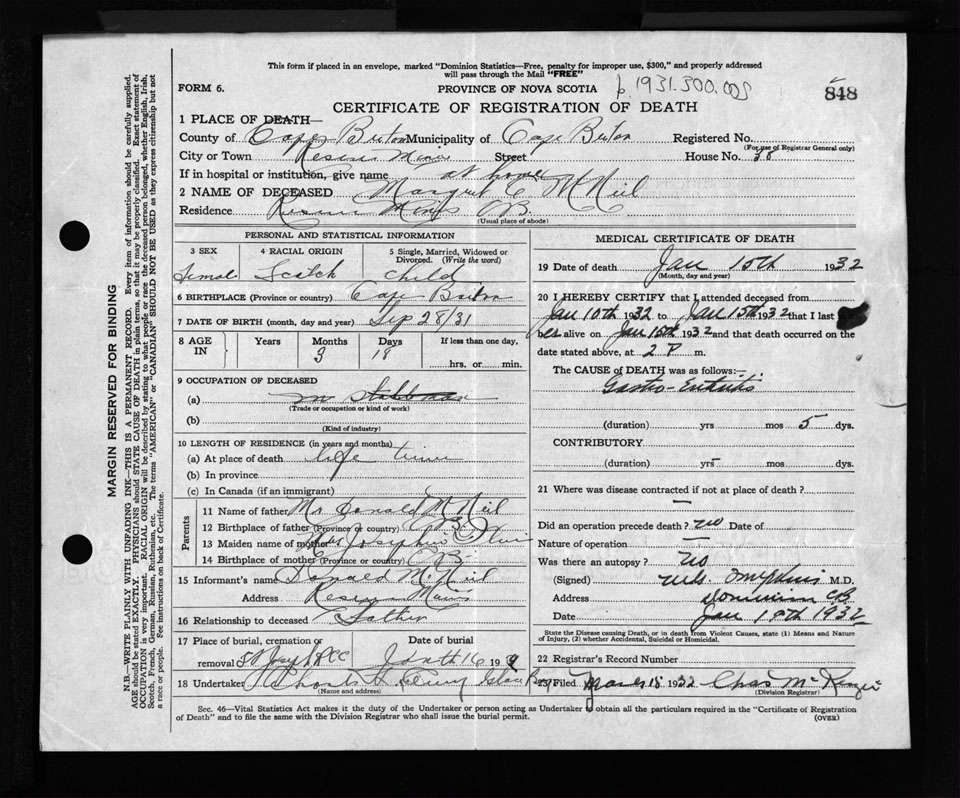 This form if placed in an envelope, marked "Dominion Statistics—Free, penalty for improper use, $300," and properly addressed
will pass through the Mail "FREE"
FORM 6. PROVINCE OF NOVA SCOTIA p. 1931.300.005
848
CERTIFICATE OF REGISTRATION OF DEATH
1 PLACE OF DEATH—
County of Cape Breton Municipality of Cape Breton Registered No.
(For use of Registrar General only)
City or Town Reserve Mines Street House No. 38
If in hospital or institution, give name at home
2 NAME OF DECEASED Margret C McNeil
Residence Reserve Mines CB.
(Usual place of abode)
PERSONAL AND STATISTICAL INFORMATION
3 SEX 4 RACIAL ORIGIN 5 Single, Married, Widowed or Divorced. (Write the word)
Femal Scotch child
6 BIRTHPLACE (Province or country) Cape Breton
7 DATE OF BIRTH (month, day and year) Sep 28/31
8 AGE IN Years Months Days If less than one day,
3 18
hrs. or min.
9 OCCUPATION OF DECEASED
(a)
(Trade or occupation or kind of work)
(b)
(Kind of industry)
10 LENGTH OF RESIDENCE (in years and months)
(a) At place of death life time
(b) In province
(c) In Canada (if an immigrant)
Parents
11 Name of father Mr Donald McNeil
12 Birthplace of father (Province or country) CB
13 Maiden name of mother Mrs Josephine
14 Birthplace of mother (Province or country) CB
15 Informant's name Donald McNeil
Address Reserve Mines
16 Relationship to deceased Father
17 Place of burial, cremation or Date of burial
removal St Joseph RCC 16 19
18 Undertaker Glace Bay
(Name and address)
MEDICAL CERTIFICATE OF DEATH
19 Date of death Jan 15th 1932
(Month, day and year)
20 I HEREBY CERTIFY that I attended deceased from
Jan 10th 1932 to Jan 15th 1932 that I last saw
her alive on Jan 15th 1932 and that death occurred on the
date stated above, at 2 P m.
The CAUSE of DEATH was as follows:—
Gastro-Enteritis
(duration) yrs mos 5 dys.
CONTRIBUTORY
(duration) yrs mos dys.
21 Where was disease contracted if not at place of death? —
Did an operation precede death? no Date of
Nature of operation —
Was there an autopsy? no
(Signed) M.D.
Address Dominion CB
Date Jan 19th 1932
State the Disease causing Death, or in death from Violent Causes, state (1) Means and Nature
of Injury, (2) whether Accidental, Suicidal or Homicidal.
22 Registrar's Record Number
23 Filed 1932 Chas McKenzie
(Division Registrar)
Sec. 46—Vital Statistics Act makes it the duty of the Undertaker or person acting as Undertaker to obtain all the particulars required in the "Certificate of Registration
of Death" and to file the same with the Division Registrar who shall issue the burial permit. (OVER)
MARGIN RESERVED FOR BINDING
N.B.—WRITE PLAINLY WITH UNFADING INK—THIS IS A PERMANENT RECORD. Every item of information should be carefully supplied.
AGE should be stated EXACTLY. PHYSICIANS should STATE CAUSE OF DEATH in plain terms, so that it may be properly classified. Exact statement of
OCCUPATION is very important. RACIAL ORIGIN will be described by stating to what people or race the deceased person belonged, whether English, Irish,
Scotch, French, German, Russian, Ruthenian, etc. The terms "AMERICAN" or "CANADIAN" SHOULD NOT BE USED as they express citizenship but not
a race or people. Fee instructions on back of Certificate.